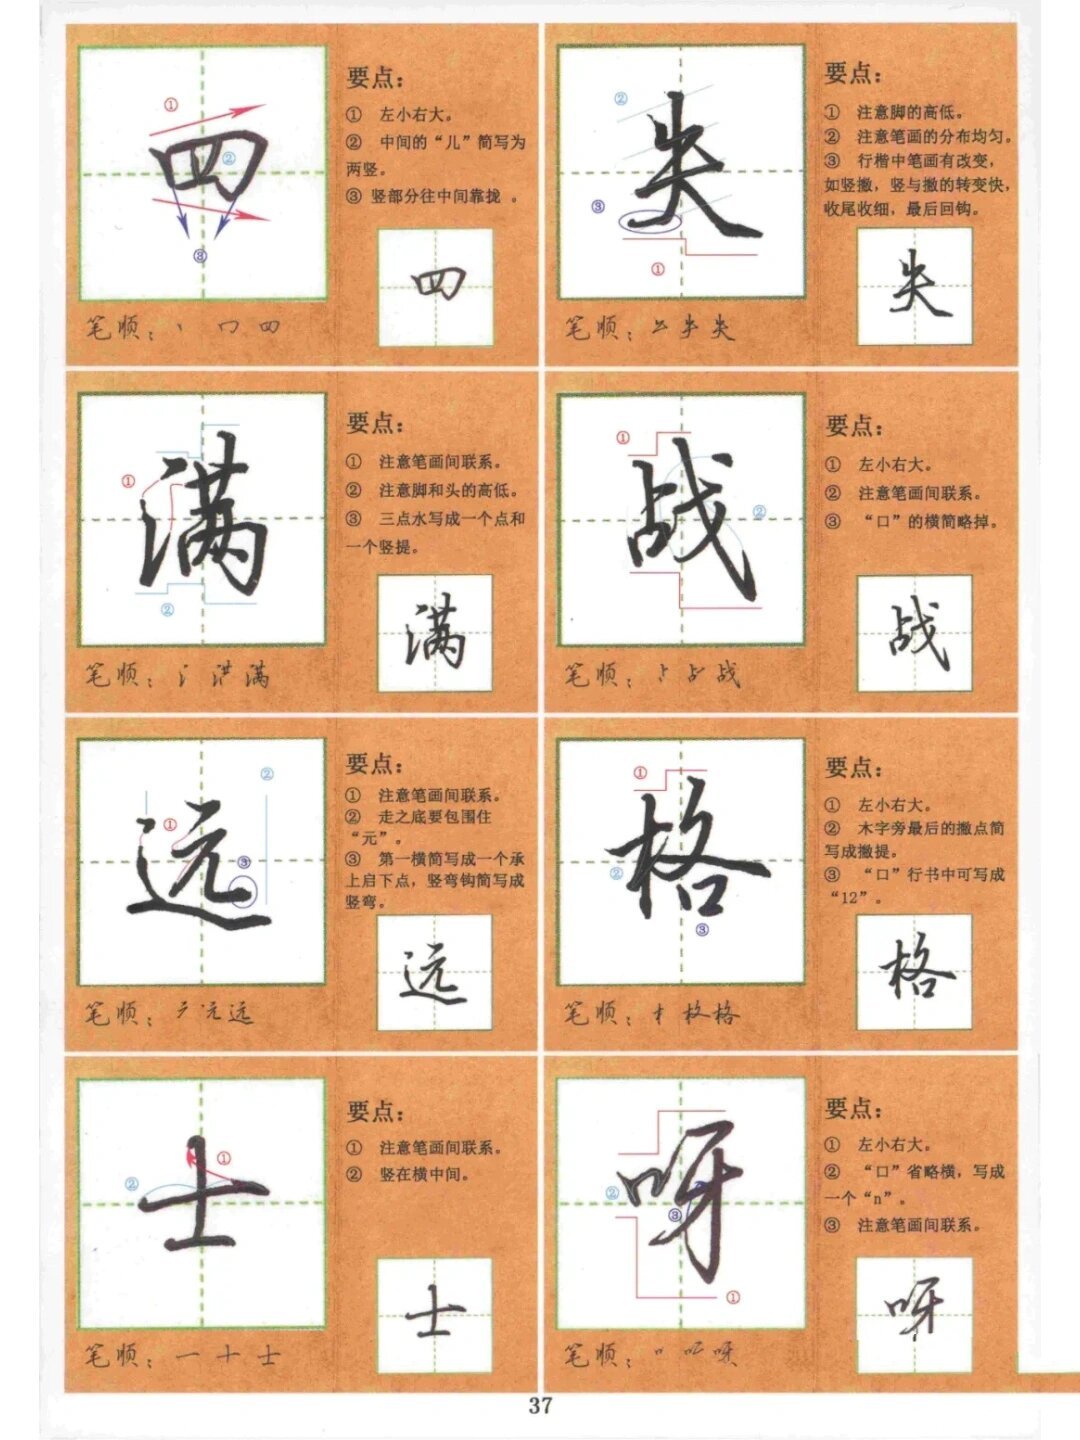 ① ② ③
四
要点：
① 左小右大。
② 中间的“儿”简写为
两竖。
③ 竖部分往中间靠拢 。
四
笔顺：丶 口 四
② ③ ①
失
要点：
① 注意脚的高低。
② 注意笔画的分布均匀。
③ 行楷中笔画有改变，
如竖撇，竖与撇的转变快，
收尾收细，最后回钩。
失
笔顺： 失
① ②
满
要点：
① 注意笔画间联系。
② 注意脚和头的高低。
③ 三点水写成一个点和
一个竖提。
满
笔顺：氵 满
① ②
战
要点：
① 左小右大。
② 注意笔画间联系。
③ “口”的横简略掉。
战
笔顺： 占 战
② ① ③
远
要点：
① 注意笔画间联系。
② 走之底要包围住
“元”。
③ 第一横简写成一个承
上启下点，竖弯钩简写成
竖弯。
远
笔顺： 元 远
① ② ③
格
要点：
① 左小右大。
② 木字旁最后的撇点简
写成撇提。
③ “口”行书中可写成
“12”。
格
笔顺： 格
① ②
士
要点：
① 注意笔画间联系。
② 竖在横中间。
士
笔顺：一 十 士
② ③ ①
呀
要点：
① 左小右大。
② “口”省略横，写成
一个“n”。
③ 注意笔画间联系。
呀
笔顺： 呀
37